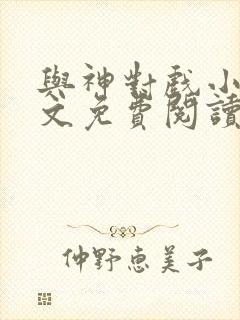 與神對戲小
文免費閱讀
仲野惠美子